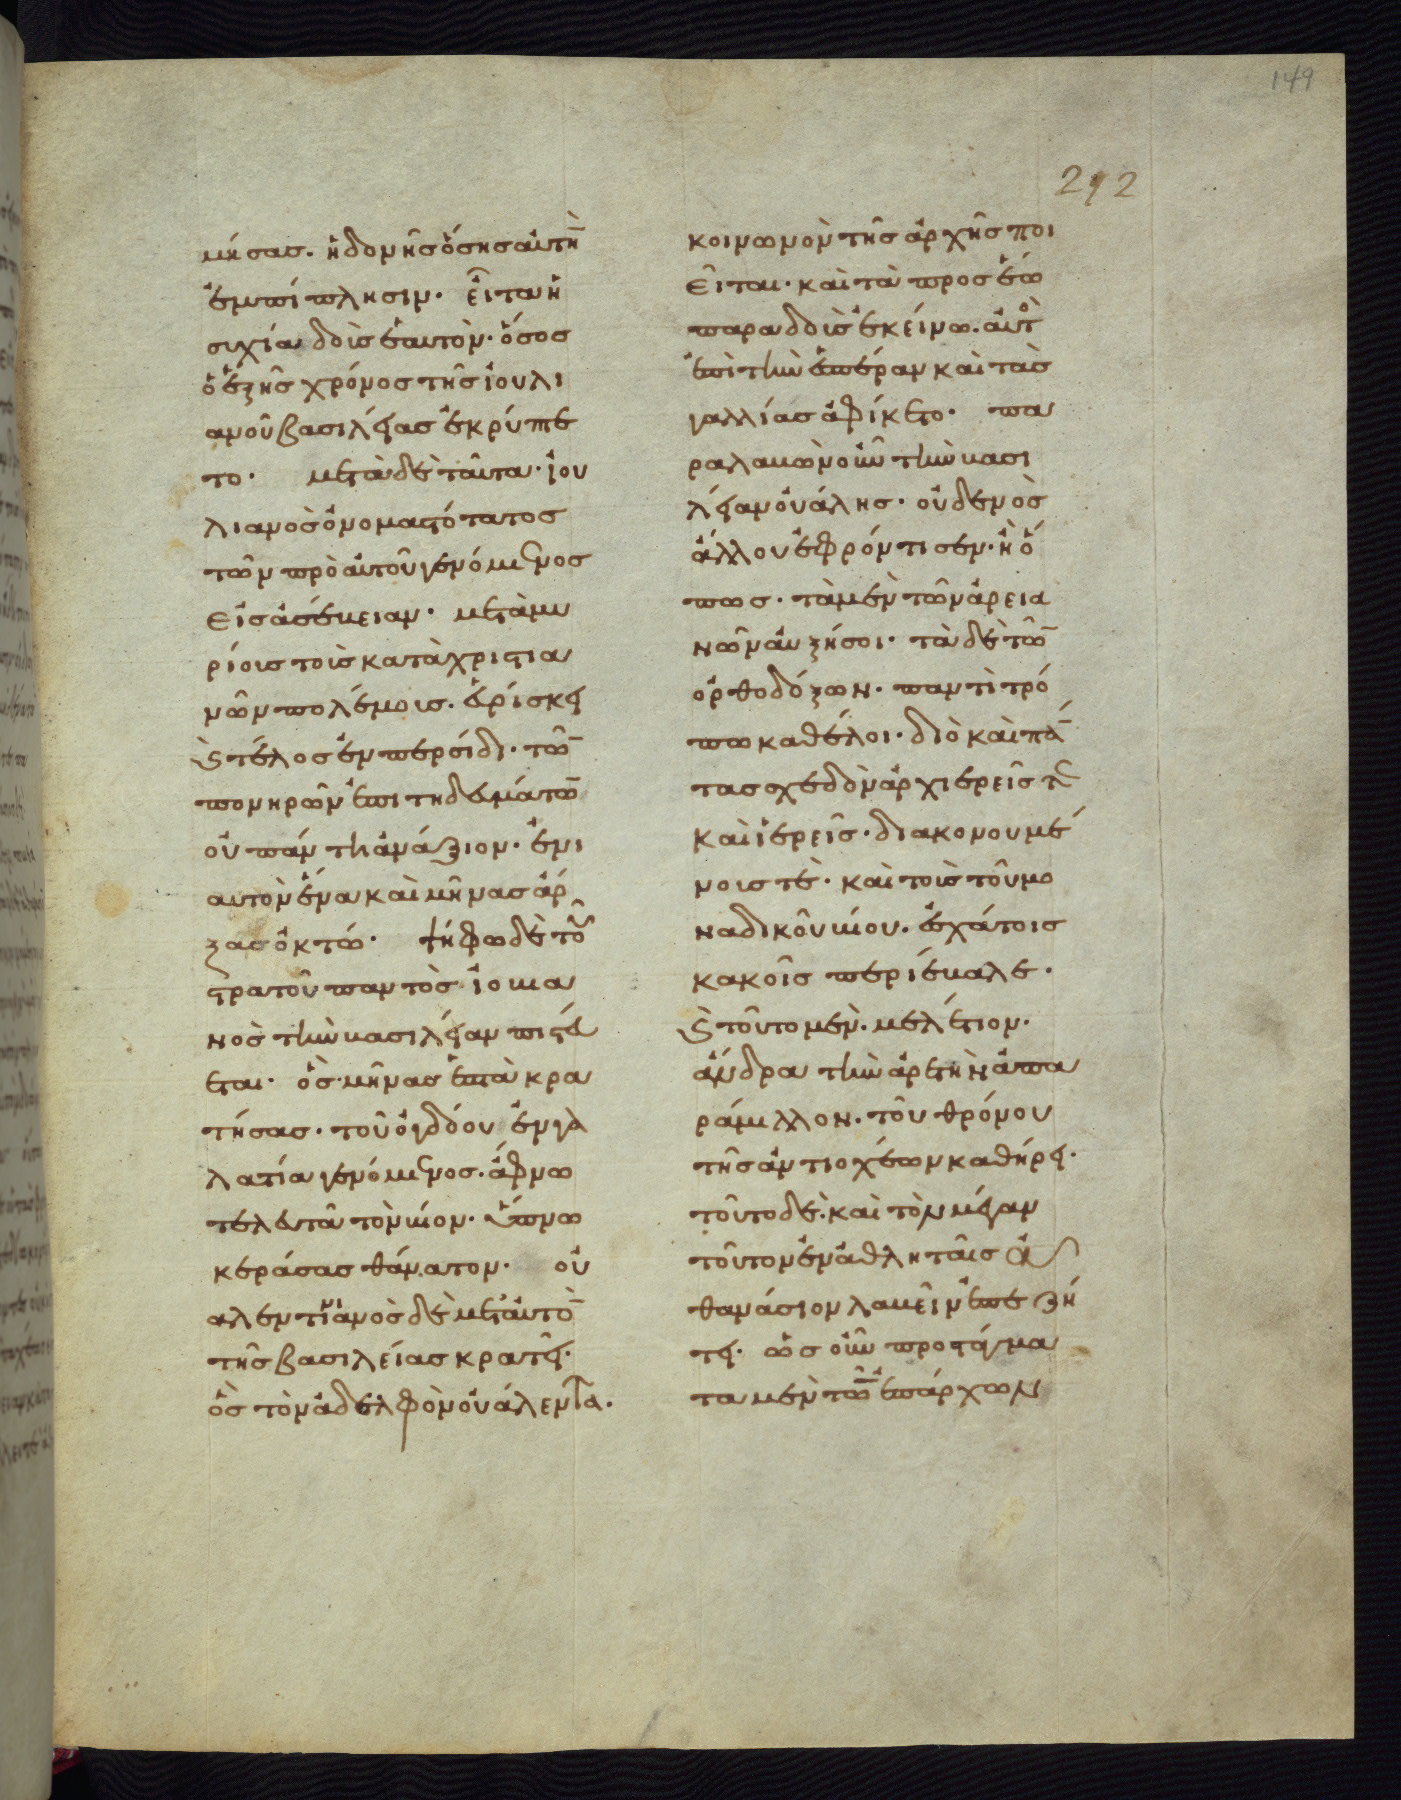 149
292
μήσας. ἡδονῆς ὅσης αὐτὴ
ἐμπίπλησιν. εἶτα ἡ
συχία δοὺς ἑαυτὸν. ὅσος
ὁ ἑξῆς χρόνος τῆς ἰουλι
ανοῦ βασιλείας ἐκρύπτε
το. μετὰ δὲ ταῦτα. ἰου
λιανὸς ὀνομαστότατος
τῶν πρὸ αὐτοῦ γενόμενος
εἰς ἀσέβειαν. μετὰ μυ
ρίοις τοῖς κατὰ χριστια
νῶν πολέμοις. εὑρίσκει
καὶ τέλος ἐν περσίδι. τῶν
πονηρῶν ἐπιτηδευμάτων
οὐ πάντη ἀνάξιον. ἐνι
αυτὸν ἕνα καὶ μῆνας ἄρ
ξας ὀκτώ. ψήφω δὲ τοῦ
στρατοῦ παντὸς ἰοβια
νὸς τὴν βασιλείαν πιστεύ
εται. ὃς μῆνας ἑπτὰ κρα
τήσας. τοῦ ὀγδόου ἐν γα
λατία γενόμενος. ἄφνω
τελευτᾶ τὸν βίον. ὕπνω
κεράσας θάνατον. οὐ
αλεντινιανὸς δὲ μετ' αὐτὸν
τῆς βασιλείας κρατεῖ.
ὃς τὸν ἀδελφὸν οὐάλεντα.
κοινωνὸν τῆς ἀρχῆς ποι
εῖται. καὶ τὰ πρὸς ἕω
παραδοὺς ἐκείνω. αὐτὸς
ἐπὶ τὴν ἑσπέραν καὶ τὰς
γαλλίας ἀφίκετο. πα
ραλαβὼν οὖν τὴν βασι
λείαν οὐάλης. οὐδενὸς
ἄλλου ἐφρόντισεν. ἢ ὅ
πως. τὰ μὲν τῶν ἀρεια
νῶν αὐξήσοι. τὰ δὲ τῶν
ὀρθοδόξων. παντὶ τρό
πω καθέλοι. διὸ καὶ πάν
τας σχεδὸν ἀρχιερεῖς τε
καὶ ἱερεῖς. διακονουμέ
νοις τὲ. καὶ τοῖς τοῦ μο
ναδικοῦ βίου. ἐσχάτοις
κακοῖς περιέβαλε.
καὶ τοῦτο μὲν. μελέτιον.
ἄνδρα τὴν ἀρετὴν ἀπα
ράμιλλον. τοῦ θρόνου
τῆς ἀντιοχέων καθήρει.
τοῦτο δὲ. καὶ τὸν μέγαν
τοῦτον ἐν ἀθληταῖς ἀ
θανάσιον λαβεῖν ἐπεζή
τει. ὡς οὖν προστάγμα
τα μὲν τῶν ἐπάρχων